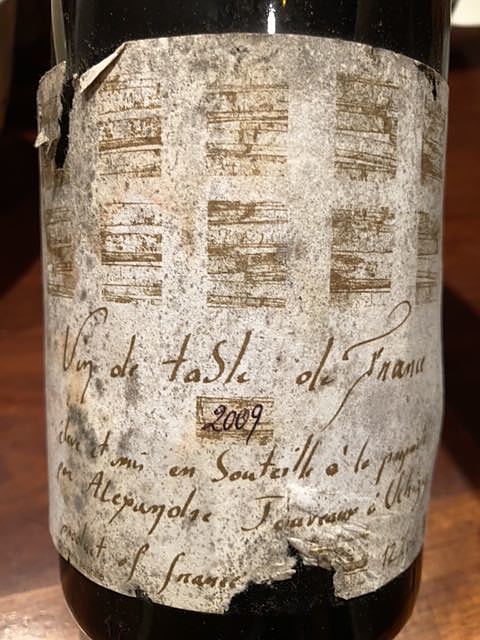 Vin de table de France
2009
élevé et mis en bouteille à la
par Alexandre Jouveaux à Uchizy
product of france 12